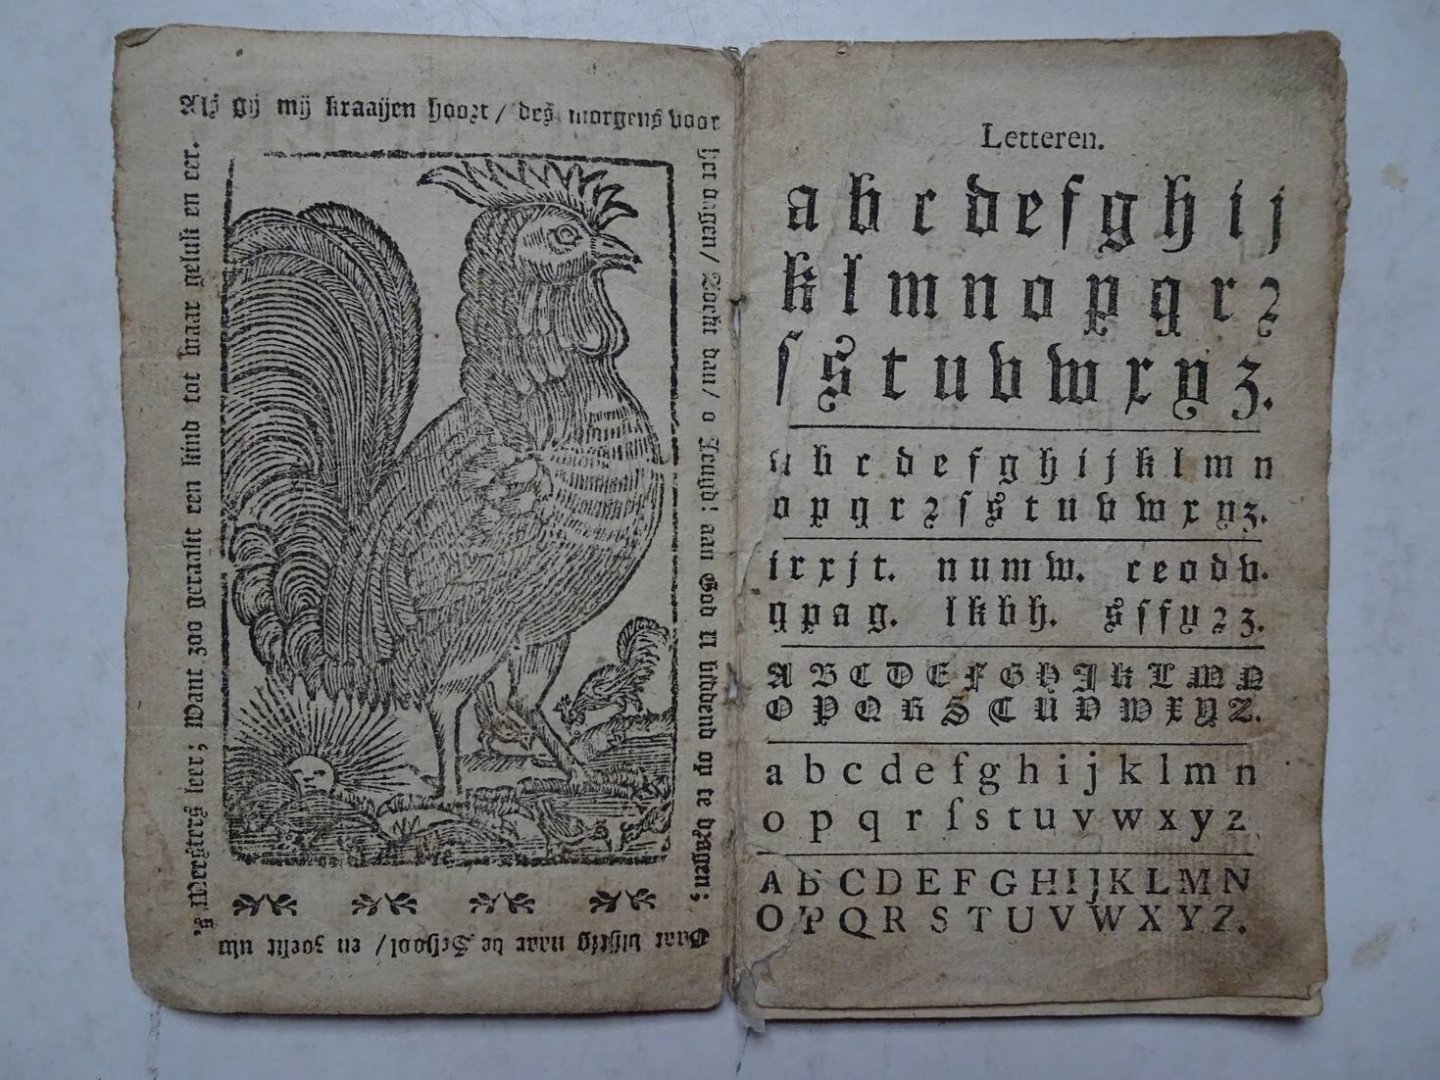 Als gij mij kraaijen hoort / des morgens voor
het dagen / Zoekt dan / o Jeugd! aan God U biddend op te dragen;
Gaat vlijtig naar de School / en zoekt uw
's Meesters leer; Want zoo geraakt een kind tot waar geluk en eer.
Letteren.
a b c d e f g h i j
k l m n o p q r ꝛ
ſ s t u v w x y z.
a b c d e f g h i j k l m n
o p q r ꝛ ſ s t u v w x y z.
i r x j t. n u m w. c e o d v.
q p a g. l k b h. s ſ f y ꝛ z.
A B C D E F G H J K L M N
O P Q R S T U V W X Y Z.
a b c d e f g h i j k l m n
o p q r ſ s t u v w x y z
A B C D E F G H I J K L M N
O P Q R S T U V W X Y Z.